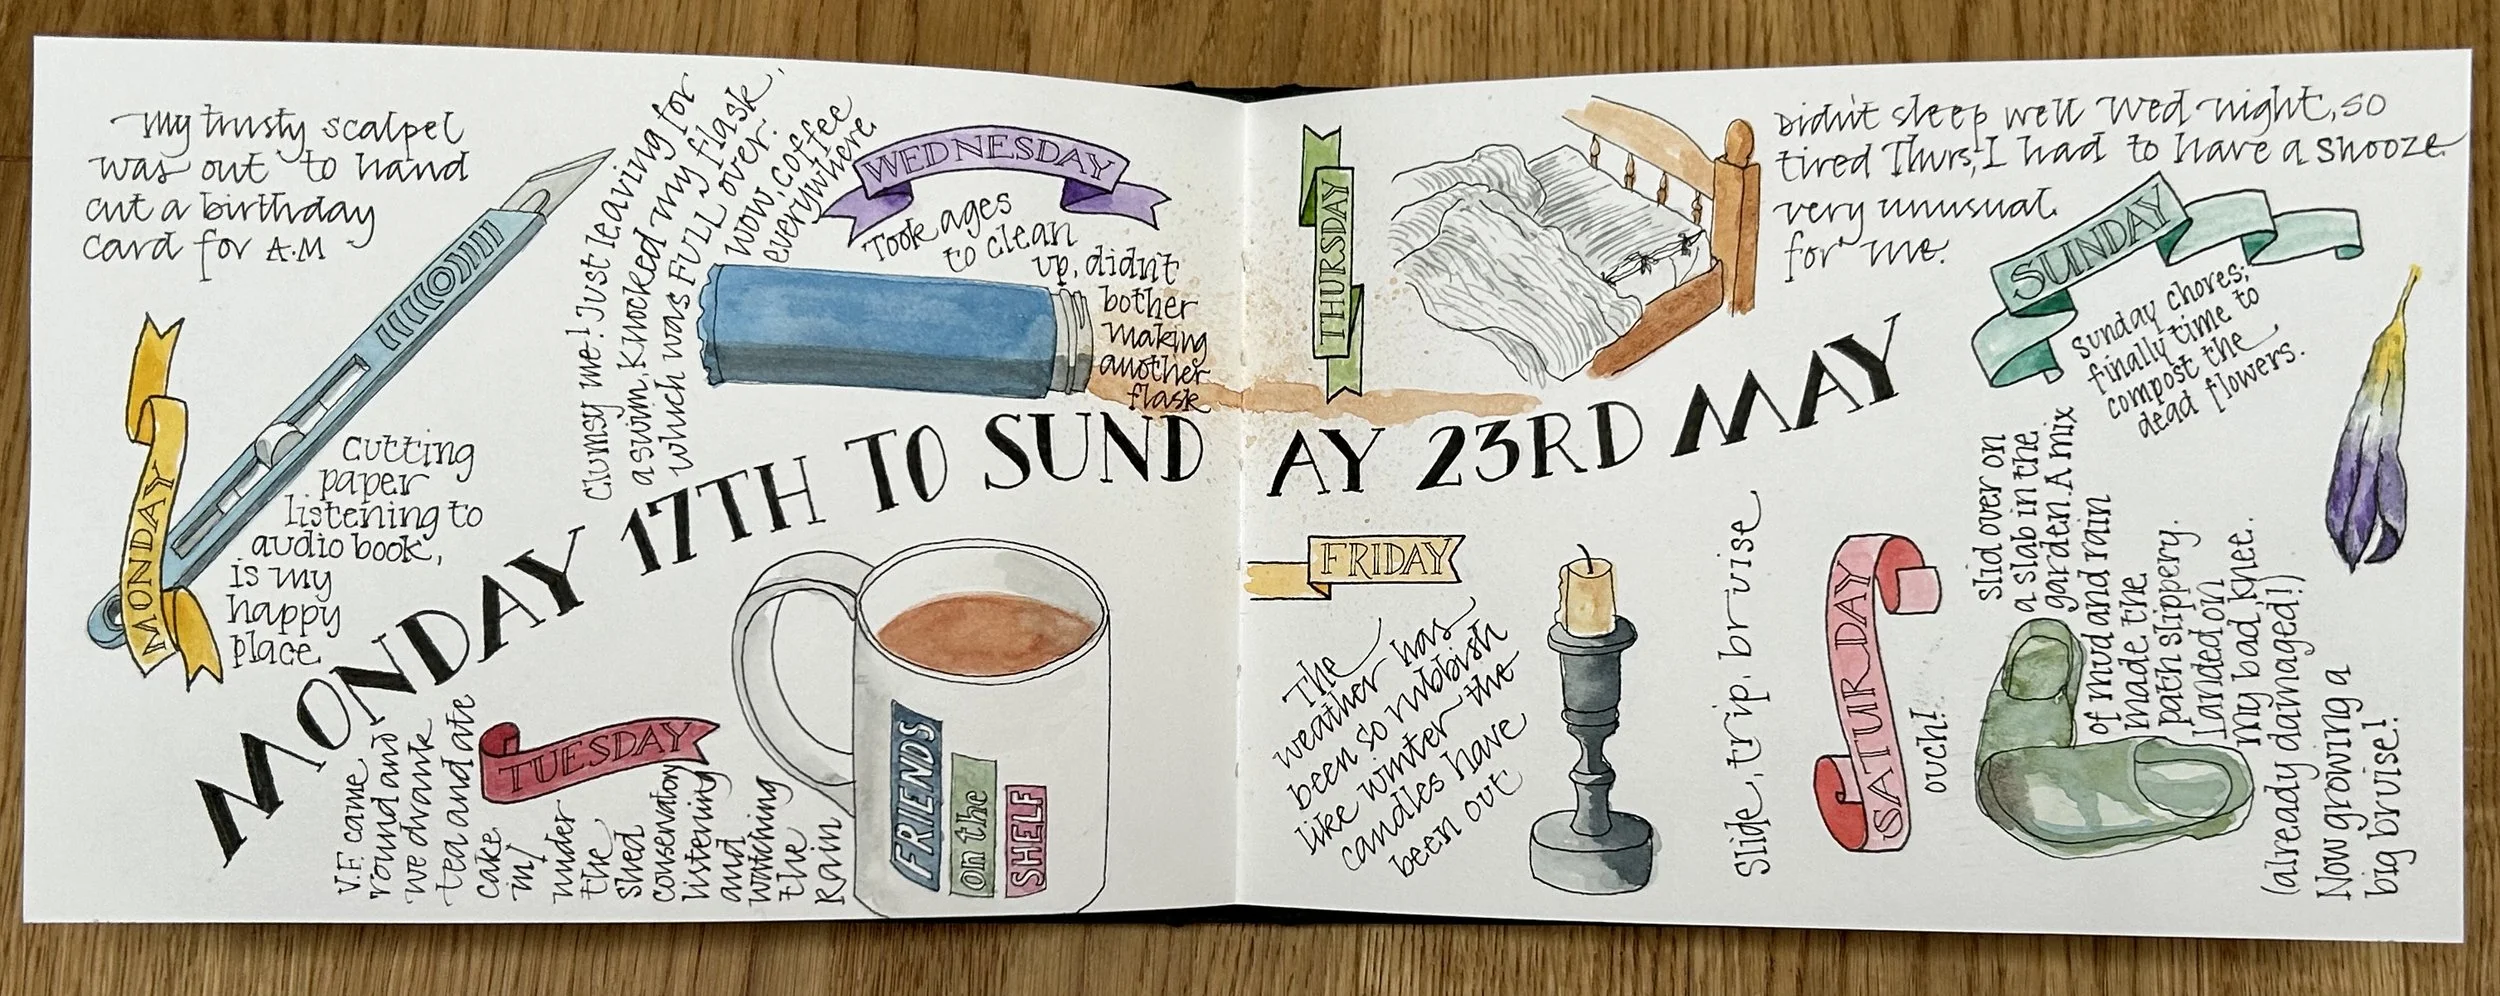 My trusty scalpel
was out to hand
cut a birthday
card for A.M
MONDAY
cutting
paper
listening to
audio book,
is my
happy
place.
MONDAY 17TH TO SUNDAY 23RD MAY
V.F. came
round and
we drank
tea and ate
cake
in/
under
the
shed
conservatory
listening
and
watching
the
rain
TUESDAY
FRIENDS
on the
SHELF
Clumsy me! Just leaving for
a swim, knocked my flask,
which was FULL over.
wow, coffee
everywhere.
WEDNESDAY
Took ages
to clean
up, didn't
bother
making
another
flask
THURSDAY
Didn't sleep well Wed night, so
tired Thurs, I had to have a snooze.
very unusual
for me.
FRIDAY
The
weather has
been so rubbish
like winter the
candles have
been out
Slide, trip, bruise
SATURDAY
ouch!
Slid over on
a slab in the
garden. A mix
of mud and rain
made the
path slippery.
Landed on
my bad knee.
(already damaged!)
Now growing a
big bruise!
SUNDAY
Sunday chores;
finally time to
compost the
dead flowers.